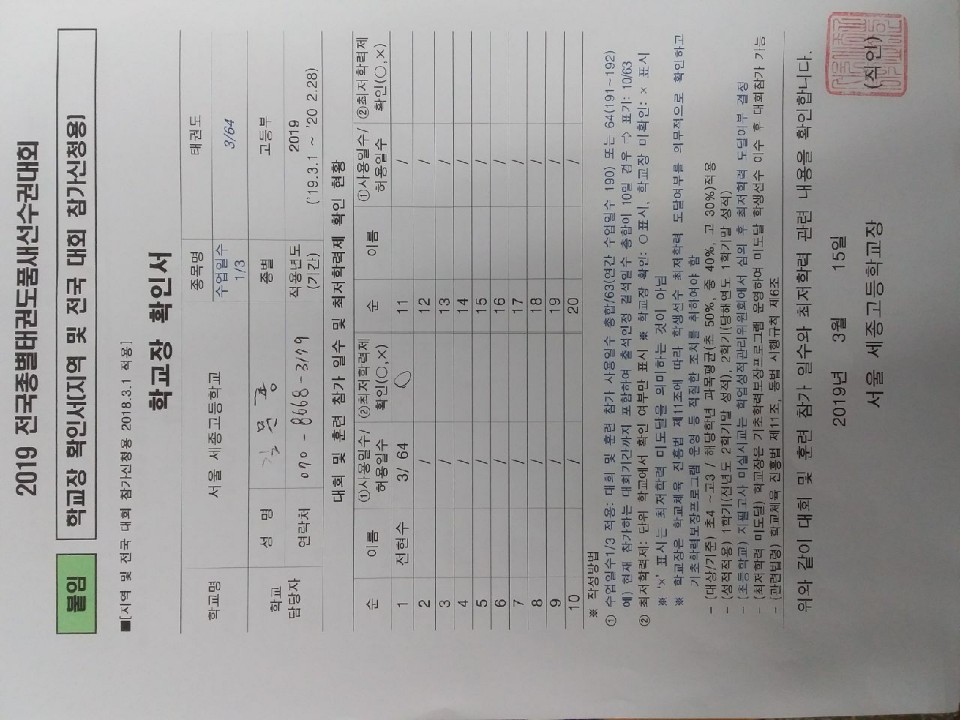 2019 전국종별태권도품새선수권대회
붙임 학교장 확인서(지역 및 전국 대회 참가신청용)
■[지역 및 전국 대회 참가신청용 2018.3.1 적용]
학교장 확인서
학교명 서울 세종고등학교 종목명 태권도
수업일수 1/3 3/64
학교 담당자 성 명 종별 고등부
연락처 070-8668-3179 적용년도 (기간) 2019 ('19.3.1 ~ '20 2.28)
대회 및 훈련 참가 일수 및 최저학력제 확인 현황
순 이름 ①사용일수/허용일수 ②최저학력제 확인(○,×) 순 이름 ①사용일수/허용일수 ②최저학력제 확인(○,×)
1 신현수 3/64 ○ 11 /
2 / 12 /
3 / 13 /
4 / 14 /
5 / 15 /
6 / 16 /
7 / 17 /
8 / 18 /
9 / 19 /
10 / 20 /
※ 작성방법
① 수업일수1/3 적용: 대회 및 훈련 참가 사용일수 총합/63(연간 수업일수 190) 또는 64(191~192)
예) 현재 참가하는 대회기간까지 포함하여 출석인정 결석일수 총합이 10일 경우 -> 표기: 10/63
② 최저학력제: 단위 학교에서 확인 여부만 표시 ※ 학교장 확인: ○표시, 학교장 미확인: × 표시
※ '×' 표시는 최저학력 미도달을 의미하는 것이 아님
※ 학교장은 학교체육 진흥법 제11조에 따라 학생선수 최저학력 도달여부를 의무적으로 확인하고
기초학력보장프로그램 운영 등 적절한 조치를 취하여야 함
- (대상/기준) 초4 ~고3 / 해당학년 과목평균(초 50%, 중 40%, 고 30%)적용
- (성적적용) 1학기(전년도 2학기말 성적), 2학기(당해연도 1학기말 성적)
- (초등학교) 지필고사 미실시교는 학업성적관리위원회에서 심의 후 최저학력 도달여부 결정
- (최저학력 미도달) 학교장은 기초학력보장프로그램 운영하여 미도달 학생선수 이수 후 대회참가 가능
- (관련법령) 학교체육 진흥법 제11조, 동법 시행규칙 제6조
위와 같이 대회 및 훈련 참가 일수와 최저학력 관련 내용을 확인합니다.
2019년 3월 15일
서울 세종고등학교장 (직인)